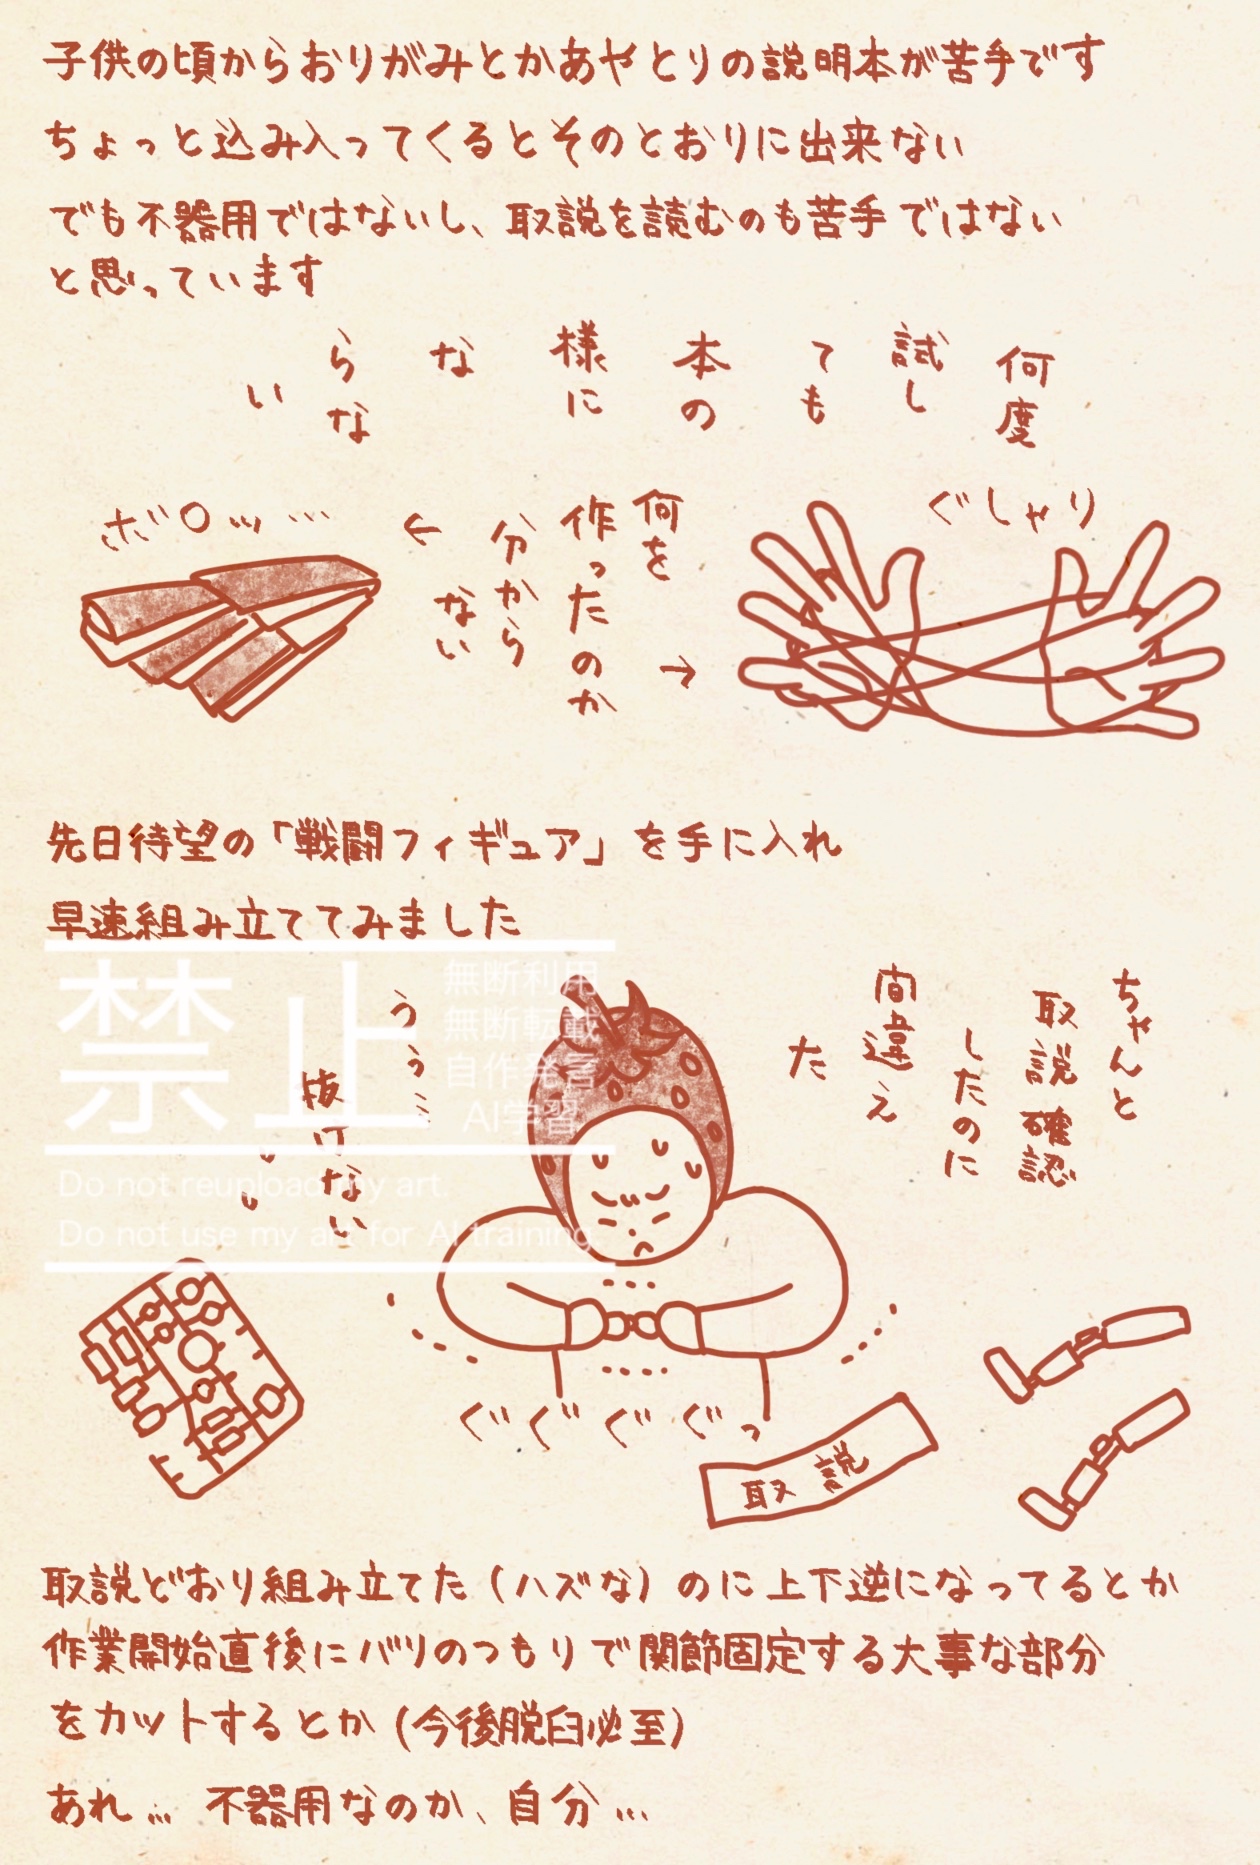 子供の頃からおりがみとかあやとりの説明本が苦手です
ちょっと込み入ってくるとそのとおりに出来ない
でも不器用ではないし、取説を読むのも苦手ではない
と思っています
何度
試し
ても
本の
様に
な
らな
い
ぐしゃり
何を
作ったのか
分から
ない
→
←
ボロッ……
先日待望の「戦闘フィギュア」を手に入れ
早速組み立ててみました
ちゃんと
取説確認
したのに
間違え
た
うぅ…
抜けない
禁止
無断利用
無断転載
自作発言
AI学習
Do not reupload my art.
Do not use my art for AI training.
ぐぐぐぐっ
取説
取説どおり組み立てた（ハズな）のに上下逆になってるとか
作業開始直後にバリのつもりで関節固定する大事な部分
をカットするとか（今後脱臼必至）
あれ… 不器用なのか、自分…